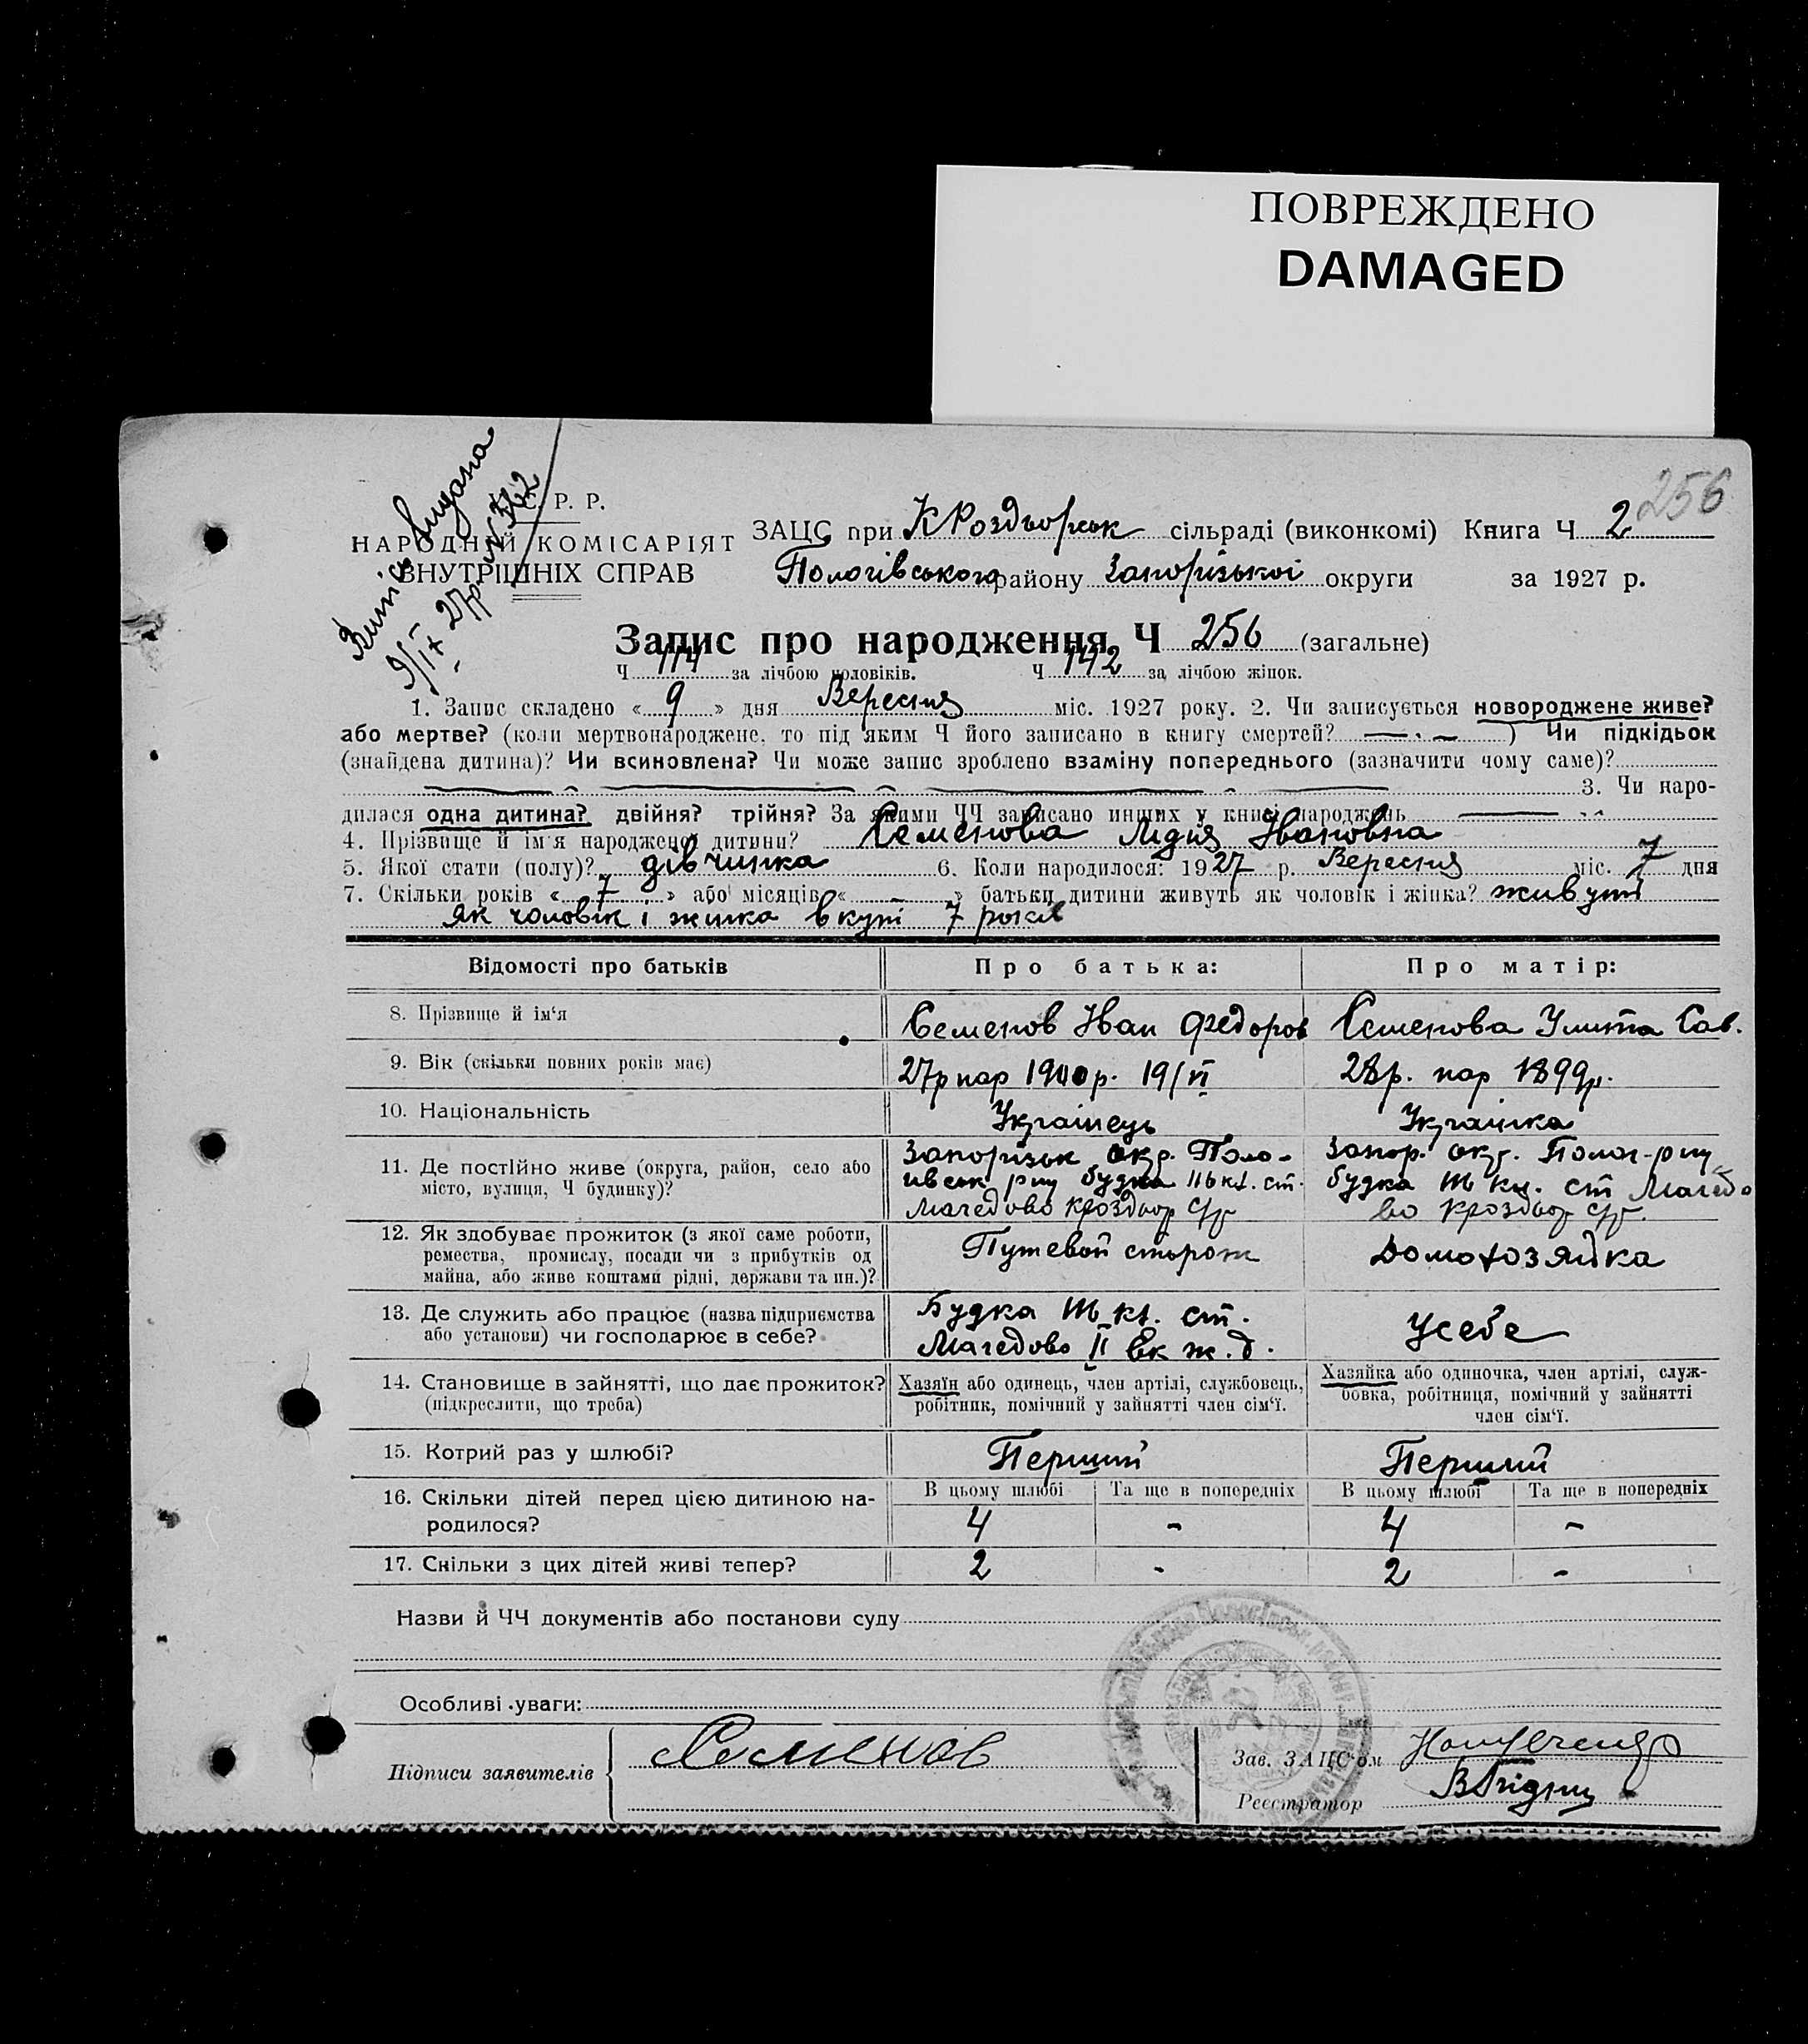 ПОВРЕЖДЕНО
DAMAGED
256
Р. Р.
НАРОДНІЙ КОМІСАРІЯТ
ВНУТРІШНІХ СПРАВ
Витис видана
9/ІХ 27р
ЗАЦС при КРоздорськ сільраді (виконкомі) Книга Ч 2
Пологівського району Запорізькоі округи за 1927 р.
Запис про народження Ч 256 (загальне)
Ч 114 за лічбою чоловіків. Ч 142 за лічбою жінок.
1. Запис складено « 9 » дня Вересня міс. 1927 року. 2. Чи записується новороджене живе?
або мертве? (коли мертвонароджене, то під яким Ч його записано в книгу смертей? — . — ) Чи підкідьок
(знайдена дитина)? Чи всиновлена? Чи може запис зроблено взаміну попереднього (зазначити чому саме)?
3. Чи наро-
дилася одна дитина? двійня? трійня? За якими ЧЧ записано инших у книзі народжень
4. Прізвище й ім'я народженої дитини? Семенова Лидия Ивановна
5. Якої стати (полу)? дівчинка 6. Коли народилося: 1927 р. Вересня міс. 7 дня
7. Скільки років « 7 » або місяців « — » батьки дитини живуть як чоловік і жінка? живуть
як чоловік і жинка вкупі 7 років
Відомості про батьків Про батька: Про матір:
8. Прізвище й ім‘я Семенов Иван Федоров Семенова Улита Сав.
9. Вік (скільки повних років має) 27р нар 1900р. 19/VI 28р. нар 1899р.
10. Національність Украінець Украінка
11. Де постійно живе (округа, район, село або
місто, вулиця, Ч будинку)?
Запорізьк окр. Поло-
ивськ р-ну будка 116 кл. ст.
Магедово Кроздор с/р
Запор. окр. Полог-р-ну
будка кл. ст Магедо
во Кроздор с/р.
12. Як здобуває прожиток (з якої саме роботи,
ремества, промислу, посади чи з прибутків од
майна, або живе коштами рідні, держави та ин.)?
Путевой сторож Домохозяйка
13. Де служить або працює (назва підприємства
або установи) чи господарює в себе?
Будка кл. ст.
Магедово ІІ Ек ж.д.
Усебе
14. Становище в зайнятті, що дає прожиток?
(підкреслити, що треба)
Хазяїн або одинець, член артілі, службовець,
робітник, помічний у зайнятті член сім‘ї.
Хазяйка або одиночка, член артілі, служ-
бовка, робітниця, помічний у зайнятті
член сім‘ї.
15. Котрий раз у шлюбі? Перший Перший
16. Скільки дітей перед цією дитиною на-
родилося?
В цьому шлюбі Та ще в попередніх В цьому шлюбі Та ще в попередніх
4 - 4 -
17. Скільки з цих дітей живі тепер? 2 - 2 -
Назви й ЧЧ документів або постанови суду
Особливі уваги:
Підписи заявителів Семенов
Зав. ЗАЦС‘ом
Реєстратор